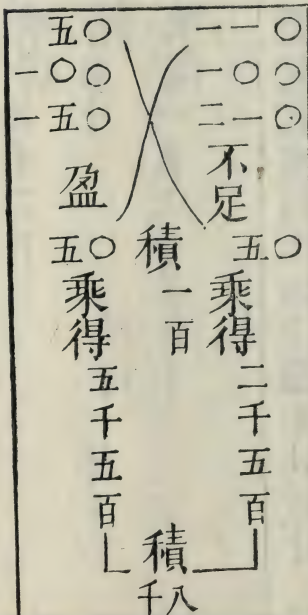 一一〇
一〇〇
二一〇
不足
五〇
乘得二千五百
積一百
積八千
五〇
一〇〇
一五〇
盈
五〇
乘得五千五百